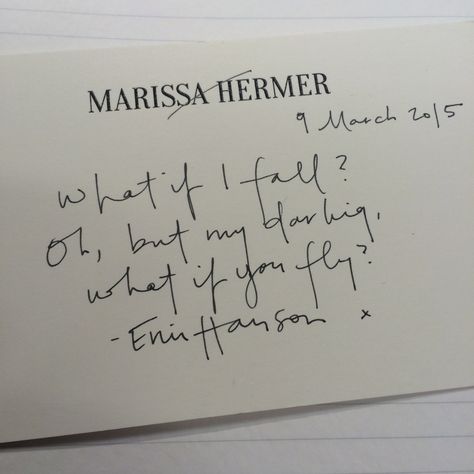 MARISSA HERMER
9 March 2015
What if I fall?
Oh, but my darling,
what if you fly?
- Erin Hanson x